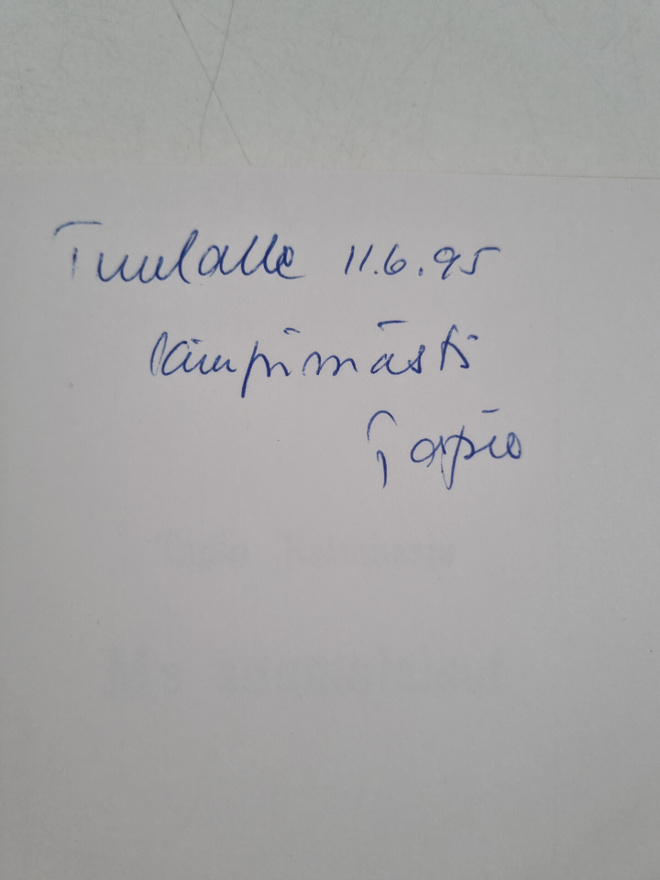 Tuulalle 11.6.95
lämpimästi
Tapio
Tapio